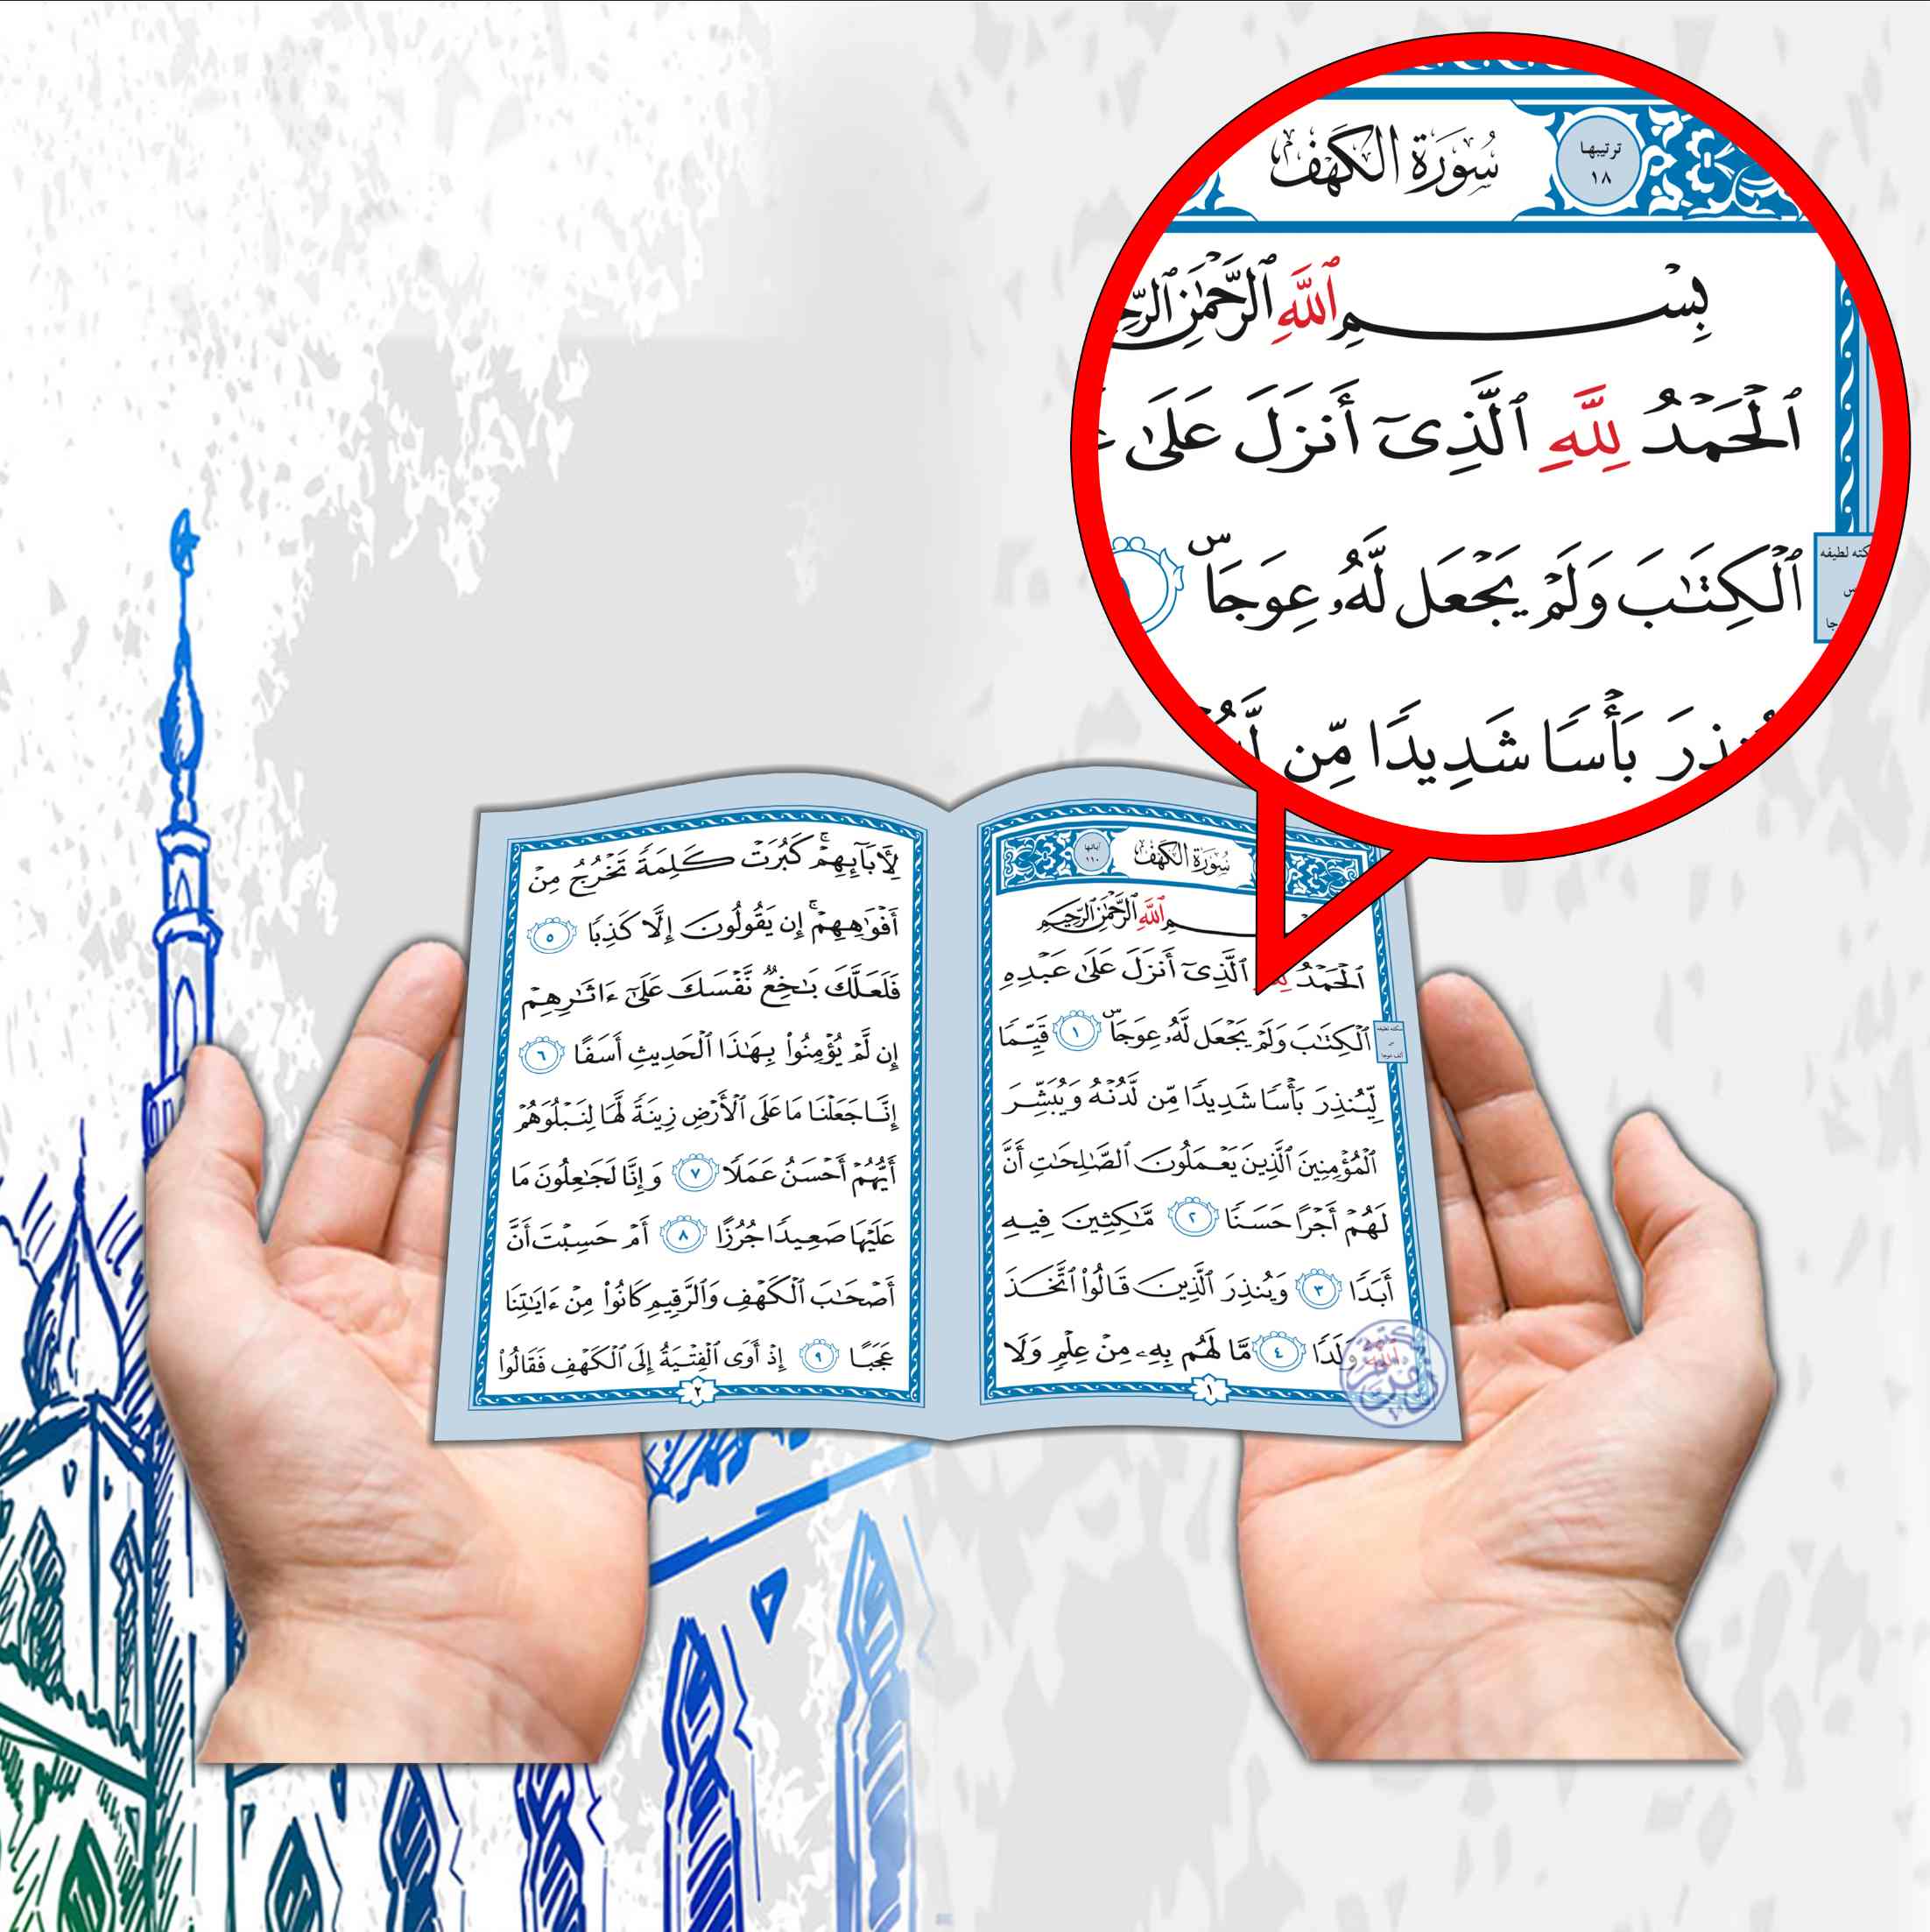 سُورَةُ الكَهْفِ
ترتيبها
١٨
بِسْمِ ٱللَّهِ ٱلرَّحْمَٰنِ
ٱلْحَمْدُ لِلَّهِ ٱلَّذِىٓ أَنزَلَ عَلَىٰ
ٱلْكِتَٰبَ وَلَمْ يَجْعَل لَّهُۥ عِوَجَاۜ
بَأْسًا شَدِيدًا مِّن
سُورَةُ الكَهْفِ
آياتها
١١٠
ٱللَّهِ ٱلرَّحْمَٰنِ ٱلرَّحِيمِ
ٱلْحَمْدُ ٱلَّذِىٓ أَنزَلَ عَلَىٰ عَبْدِهِ
ٱلْكِتَٰبَ وَلَمْ يَجْعَل لَّهُۥ عِوَجَاۜ ١ قَيِّمًا
لِّيُنذِرَ بَأْسًا شَدِيدًا مِّن لَّدُنْهُ وَيُبَشِّرَ
ٱلْمُؤْمِنِينَ ٱلَّذِينَ يَعْمَلُونَ ٱلصَّٰلِحَٰتِ أَنَّ
لَهُمْ أَجْرًا حَسَنًا ٢ مَّٰكِثِينَ فِيهِ
أَبَدًا ٣ وَيُنذِرَ ٱلَّذِينَ قَالُوا۟ ٱتَّخَذَ
وَلَدًا ٤ مَّا لَهُم بِهِۦ مِنْ عِلْمٍ وَلَا
١
لِـَٔابَآئِهِمْ ۚ كَبُرَتْ كَلِمَةً تَخْرُجُ مِنْ
أَفْوَٰهِهِمْ ۚ إِن يَقُولُونَ إِلَّا كَذِبًا ٥
فَلَعَلَّكَ بَٰخِعٌ نَّفْسَكَ عَلَىٰٓ ءَاثَٰرِهِمْ
إِن لَّمْ يُؤْمِنُوا۟ بِهَٰذَا ٱلْحَدِيثِ أَسَفًا ٦
إِنَّا جَعَلْنَا مَا عَلَى ٱلْأَرْضِ زِينَةً لَّهَا لِنَبْلُوَهُمْ
أَيُّهُمْ أَحْسَنُ عَمَلًا ٧ وَإِنَّا لَجَٰعِلُونَ مَا
عَلَيْهَا صَعِيدًا جُرُزًا ٨ أَمْ حَسِبْتَ أَنَّ
أَصْحَٰبَ ٱلْكَهْفِ وَٱلرَّقِيمِ كَانُوا۟ مِنْ ءَايَٰتِنَا
عَجَبًا ٩ إِذْ أَوَى ٱلْفِتْيَةُ إِلَى ٱلْكَهْفِ فَقَالُوا۟
٢